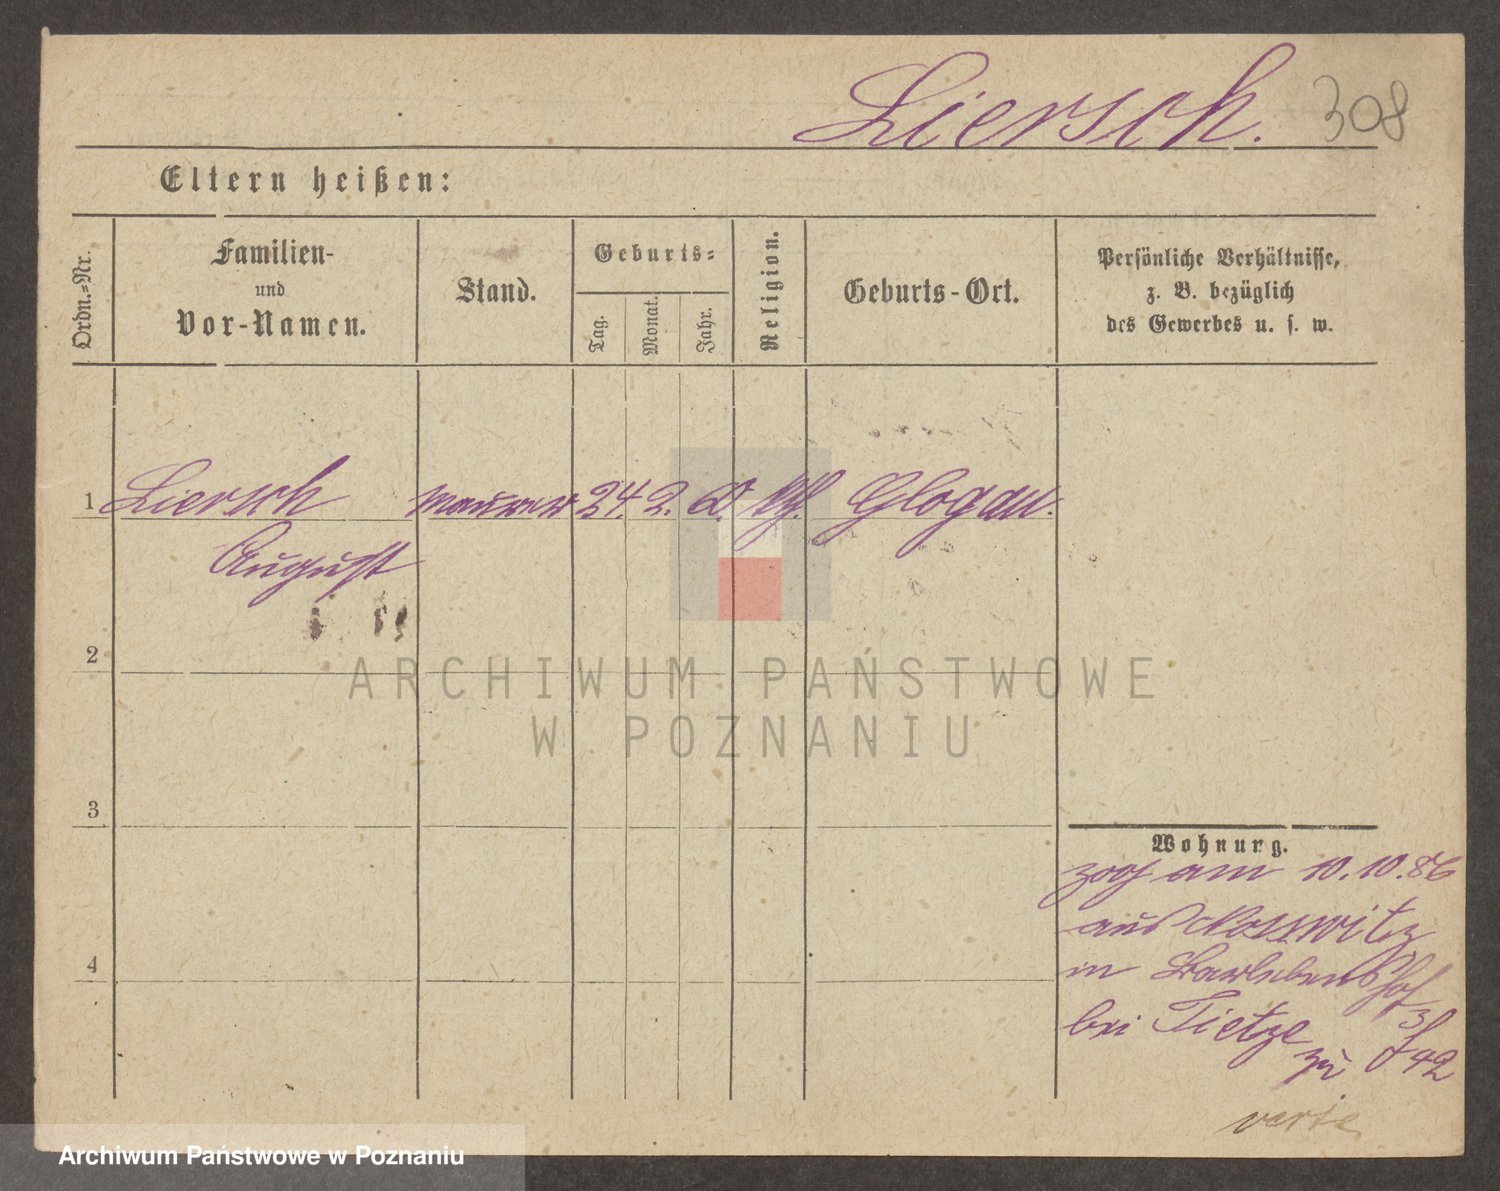 Liersch. 308
Eltern heißen:
Ordn.-Nr.
Familien-
und
Vor-Namen.
Stand.
Geburts-
Tag.
Monat.
Jahr.
Religion.
Geburts-Ort.
Persönliche Verhältnisse,
z. B. bezüglich
des Gewerbes u. s. w.
1 Liersch Maurer 24. 2. Glogau.
August
2
3
4
Wohnung.
zog am 10.10.86
aus
in Barlebenshof 3
bei Tietze
zu 42
verte
ARCHIWUM PAŃSTWOWE
W POZNANIU
Archiwum Państwowe w Poznaniu